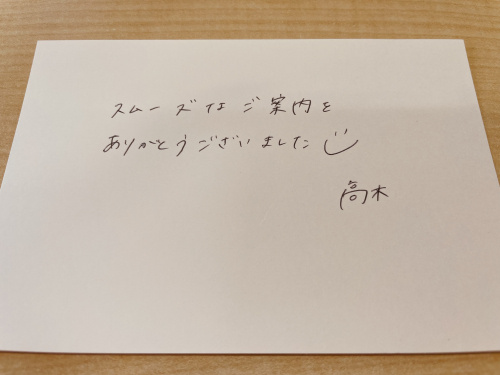 スムーズなご案内を
ありがとうございました
高木